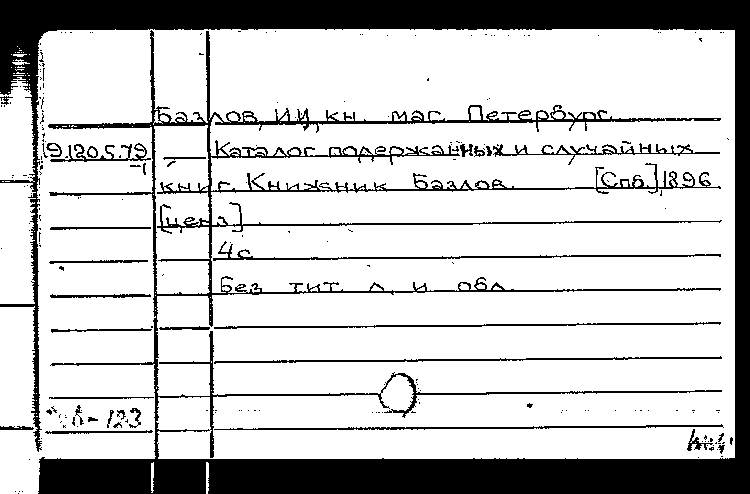 Базлов, И.И, кн. маг. Петербург.
9.120.5.79 Каталог подержанных и случайных
-1
книг. Книжник Базлов. [Спб.], 1896
[ценз]
4с
Без тит. л. и обл.
- 123